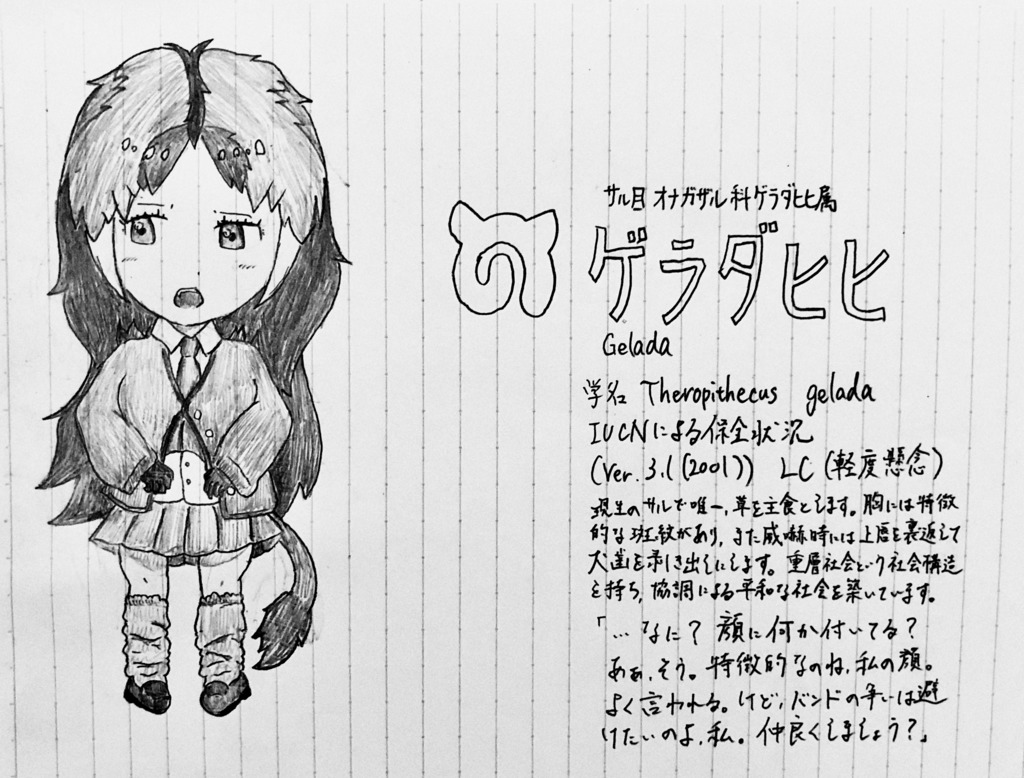 サル目 オナガザル科ゲラダヒヒ属
ゲラダヒヒ
Gelada
学名 Theropithecus gelada
IUCNによる保全状況
(ver. 3.1(2001)) LC(軽度懸念)
現生のサルで唯一、草を主食とします。胸には特徴
的な斑紋があり、また威嚇時には上唇を裏返して
犬歯を剥き出しにします。重層社会という社会構造
を持ち、協調による平和な社会を築いています。
「…なに？顔に何か付いてる？
あぁ、そう。特徴的なのね、私の顔。
よく言われる。けど、バンドの争いは避
けたいのよ、私。仲良くしましょう？」